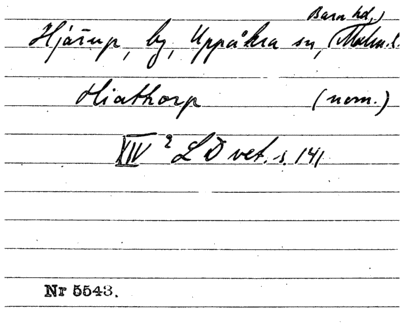 Bara hd,
Hjärup, by, Uppåkra sn, Malm. l.
Hiathorp (nom.)
XIV 2 LD vet. s. 141
Nr 5543.